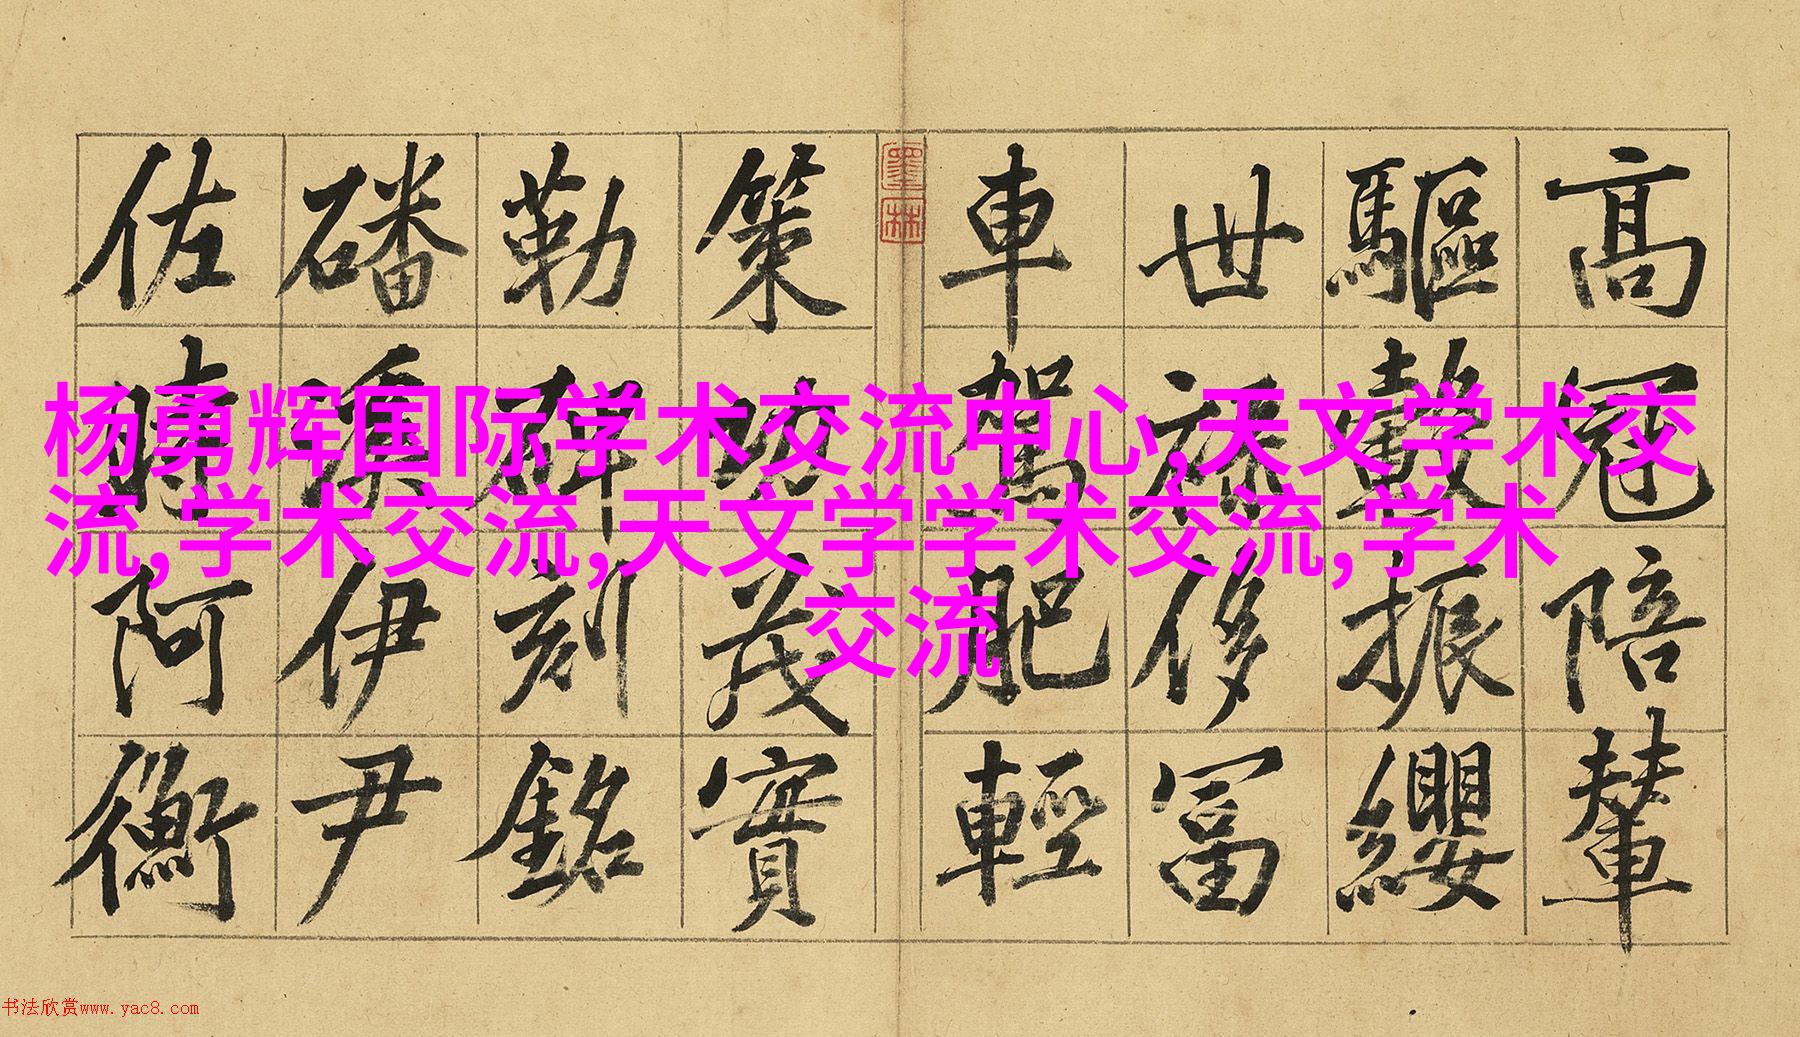 杨勇辉国际学术交流中心,天文学术交
流,学术交流,天文学学术交流,学术
交流
高冠陪輦
驅轂振纓
世祿侈富
車駕肥輕
策功茂實
勒碑刻銘
磻溪伊尹
佐時阿衡
墨林
书法欣赏www.yac8.com